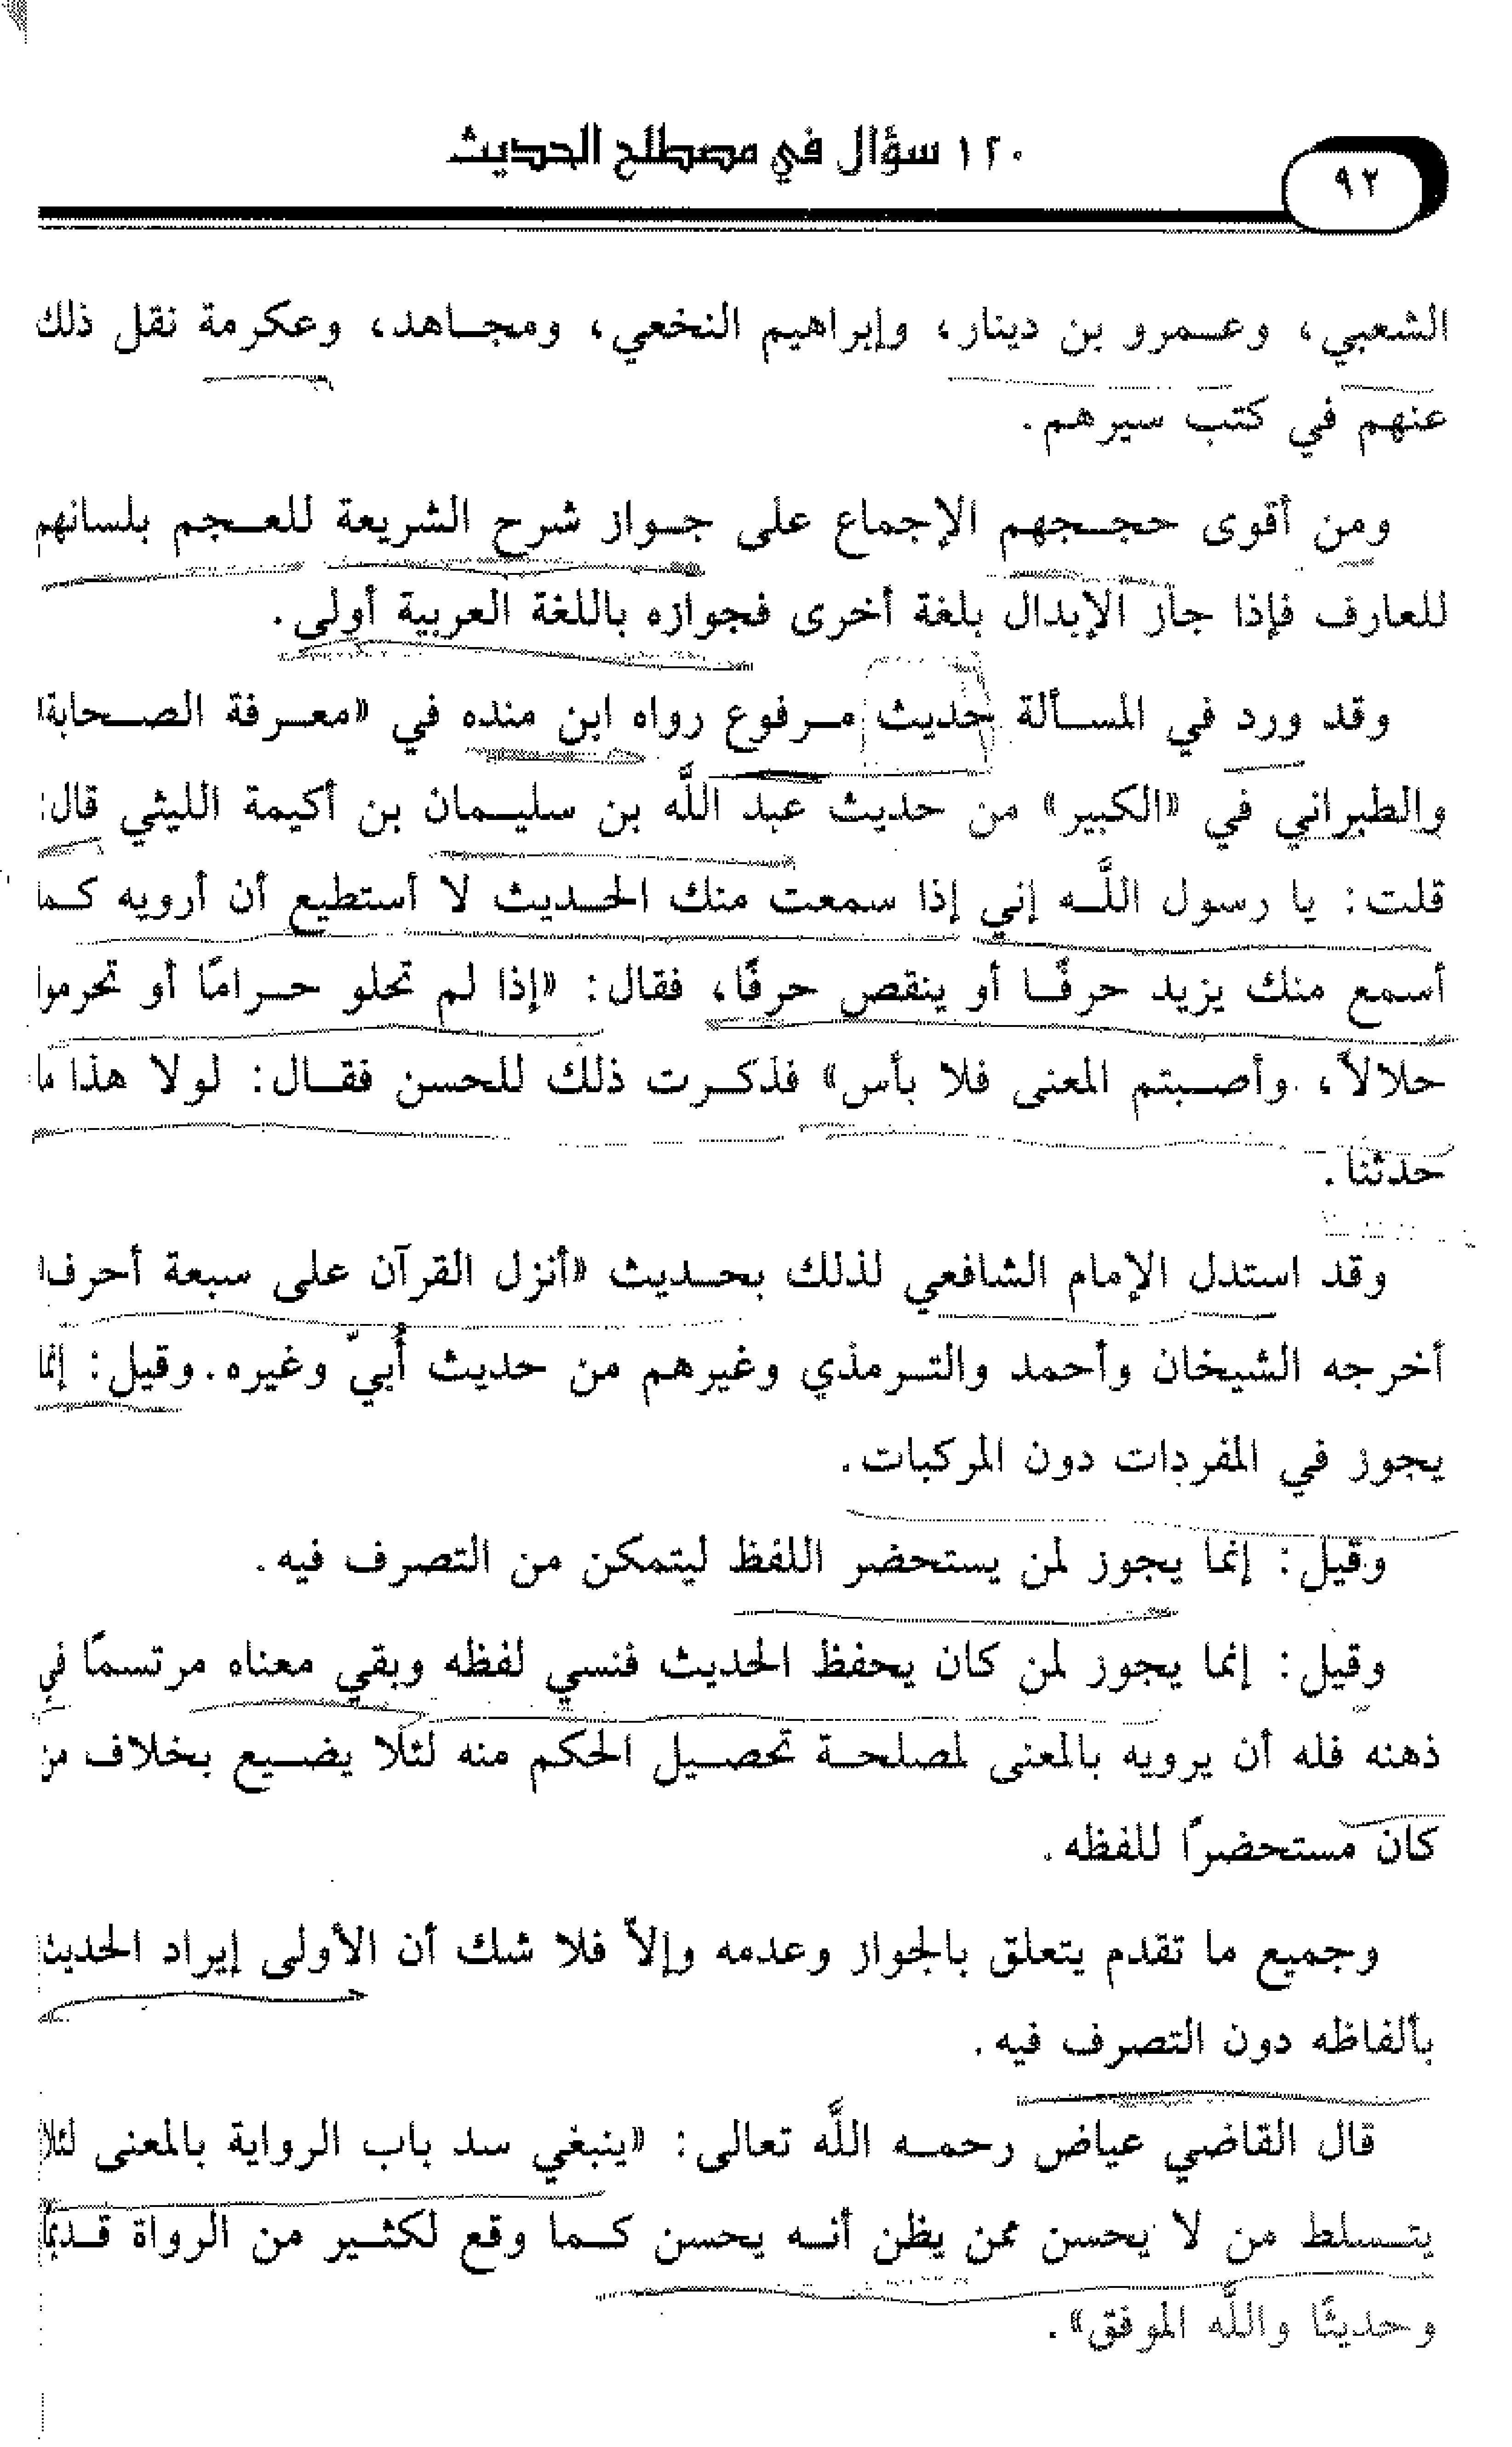 ١٢٠ سؤال في مصطلح الحديث
٩٢
الشعبي، وعـمرو بن دينار، وإبراهيم النخعي، ومجـاهد، وعكرمة نقل ذلك
عنهم في كتب سيرهم.
ومن أقوى حجـجهم الإجماع على جـواز شرح الشريعة للعـجم بلسانهم
للعارف فإذا جاز الإبدال بلغة أخرى فجوازه باللغة العربية أولى.
وقد ورد في المسـألة حديث مـرفوع رواه ابن منده في «معـرفة الصـحابة»
والطبراني في «الكبير» من حديث عبد اللَّه بن سليـمان بن أكيمة الليثي قال:
قلت: يا رسول اللَّـه إني إذا سمعت منك الحـديث لا أستطيع أن أرويه كـما
أسمع منك يزيد حرفًـا أو ينقص حرفًا، فقال: «إذا لم تحلو حـرامًا أو تحرموا
حلالاً، وأصـبتم المعنى فلا بأس» فذكـرت ذلك للحسن فقـال: لولا هذا ما
حدثنا.
وقد استدل الإمام الشافعي لذلك بحـديث «أنزل القرآن على سبعة أحرف»
أخرجه الشيخان وأحمد والتـرمذي وغيرهم من حديث أُبيّ وغيره. وقيل: إنما
يجوز في المفردات دون المركبات.
وقيل: إنما يجوز لمن يستحضر اللفظ ليتمكن من التصرف فيه.
وقيل: إنما يجوز لمن كان يحفظ الحديث فنسي لفظه وبقي معناه مرتسمًا في
ذهنه فله أن يرويه بالمعنى لمصلحـة تحصـيل الحكم منه لئلا يضـيع بخلاف من
كان مستحضرًا للفظه.
وجميع ما تقدم يتعلق بالجواز وعدمه وإلاّ فلا شك أن الأولى إيراد الحديث
بألفاظه دون التصرف فيه.
قال القاضي عياض رحمـه اللَّه تعالى: «ينبغي سد باب الرواية بالمعنى لئلا
يتـسلط من لا يحسن ممن يظن أنـه يحسن كـما وقع لكثـير من الرواة قـديمًا
وحديثًا واللَّه الموفق».